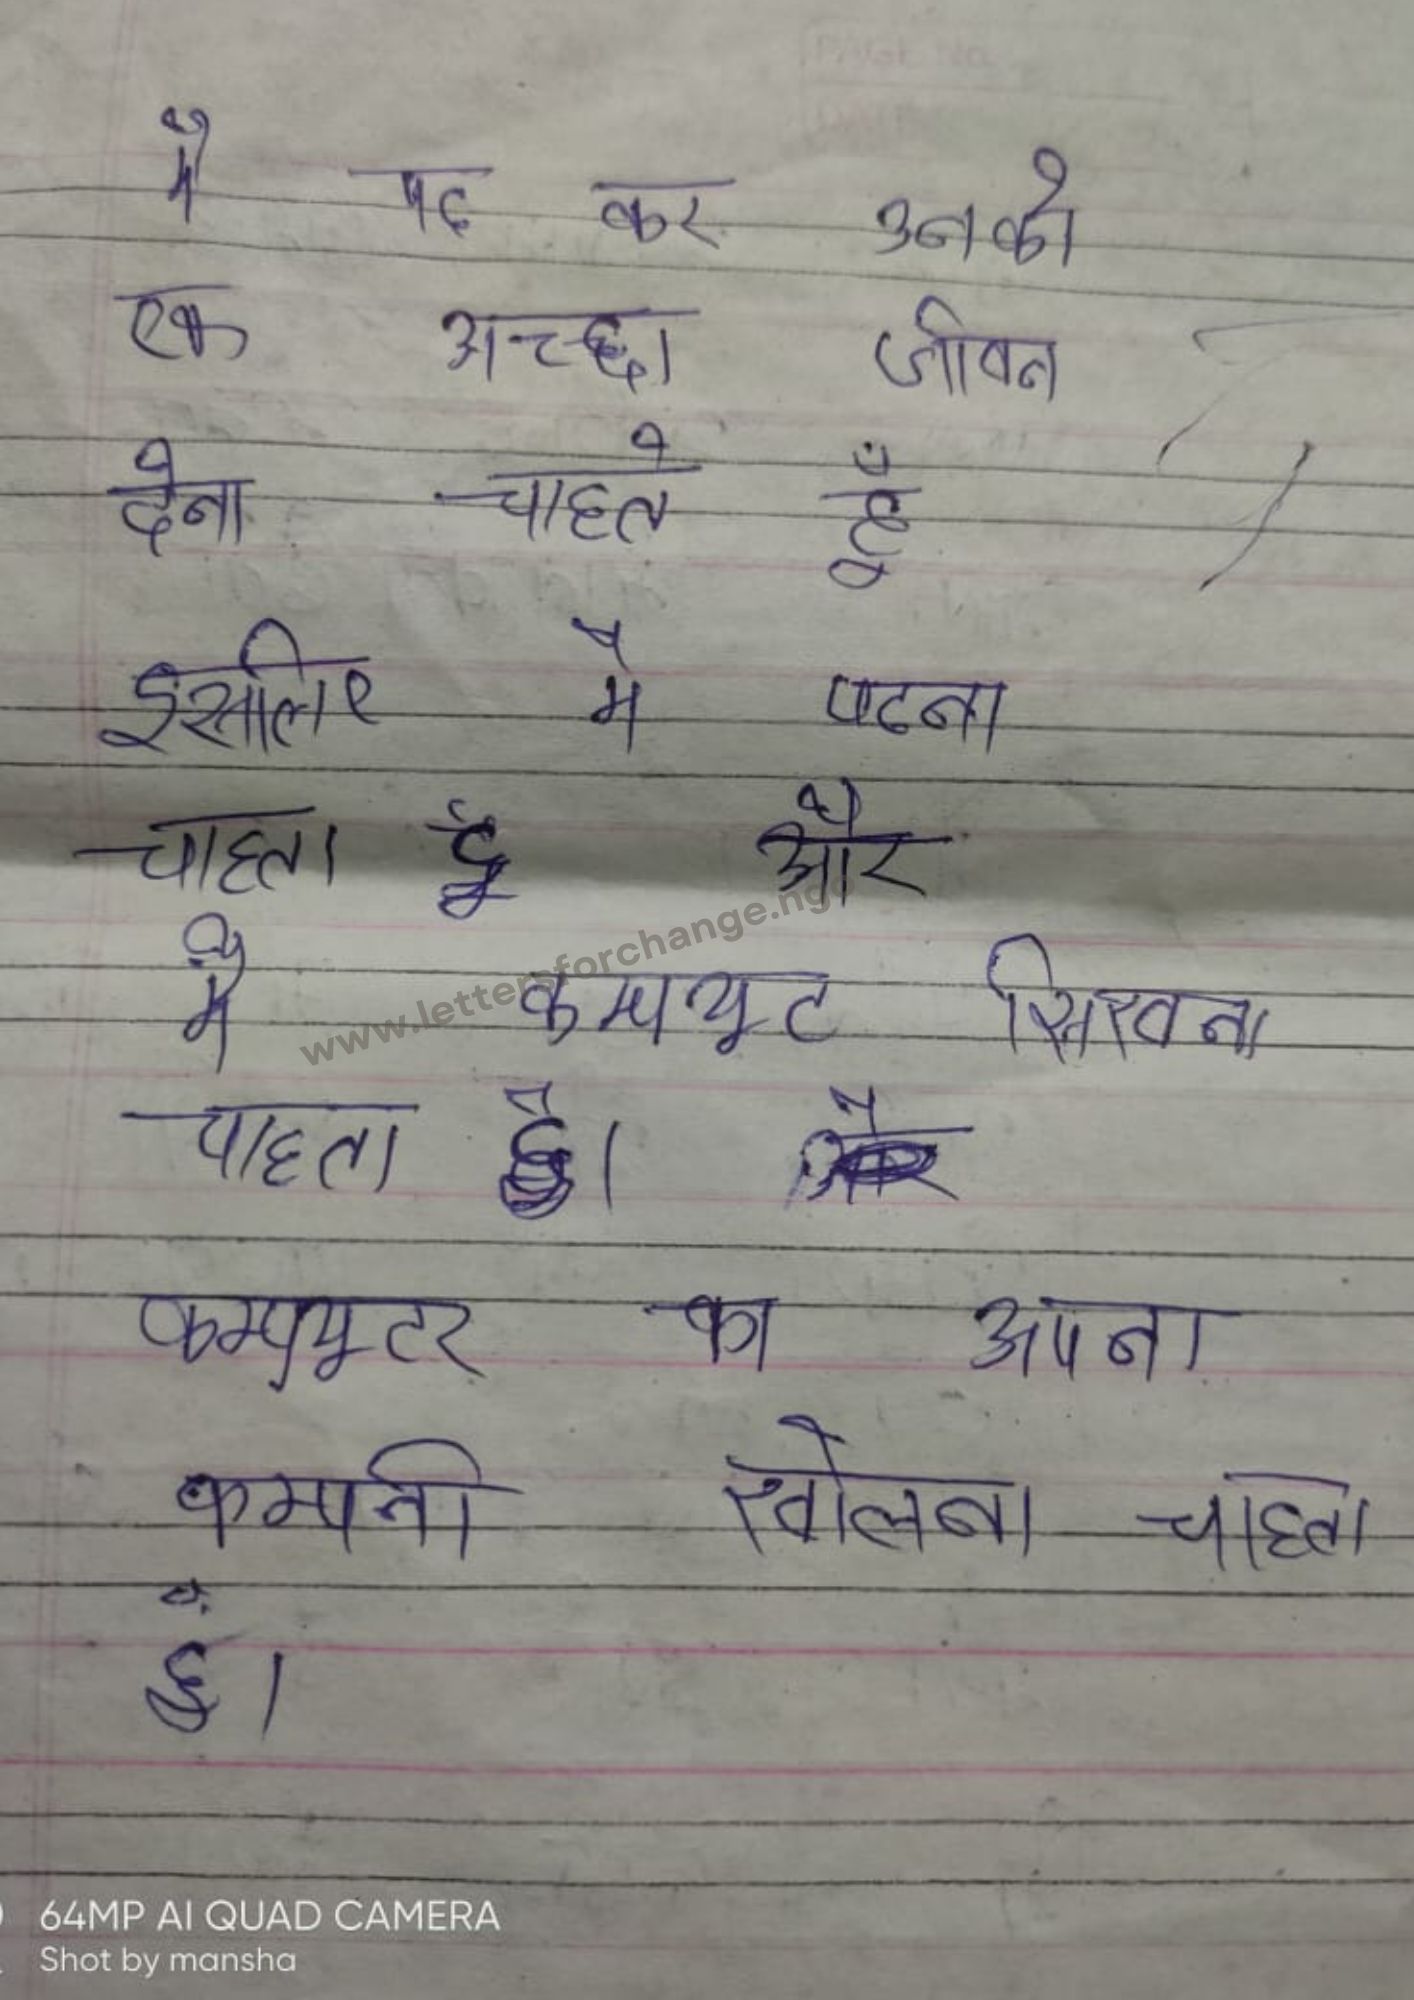 मैं पढ कर उनको
एक अच्छा जीवन
देना चाहते हूँ
इसलिए मै पढना
चाहता हूँ और
मैं कम्पयूट सिखना
चाहता हूँ।
कम्पयूटर का अपना
कम्पनी खोलना चाहता
हूँ।
www.lettersforchange.ngo
64MP AI QUAD CAMERA
Shot by mansha